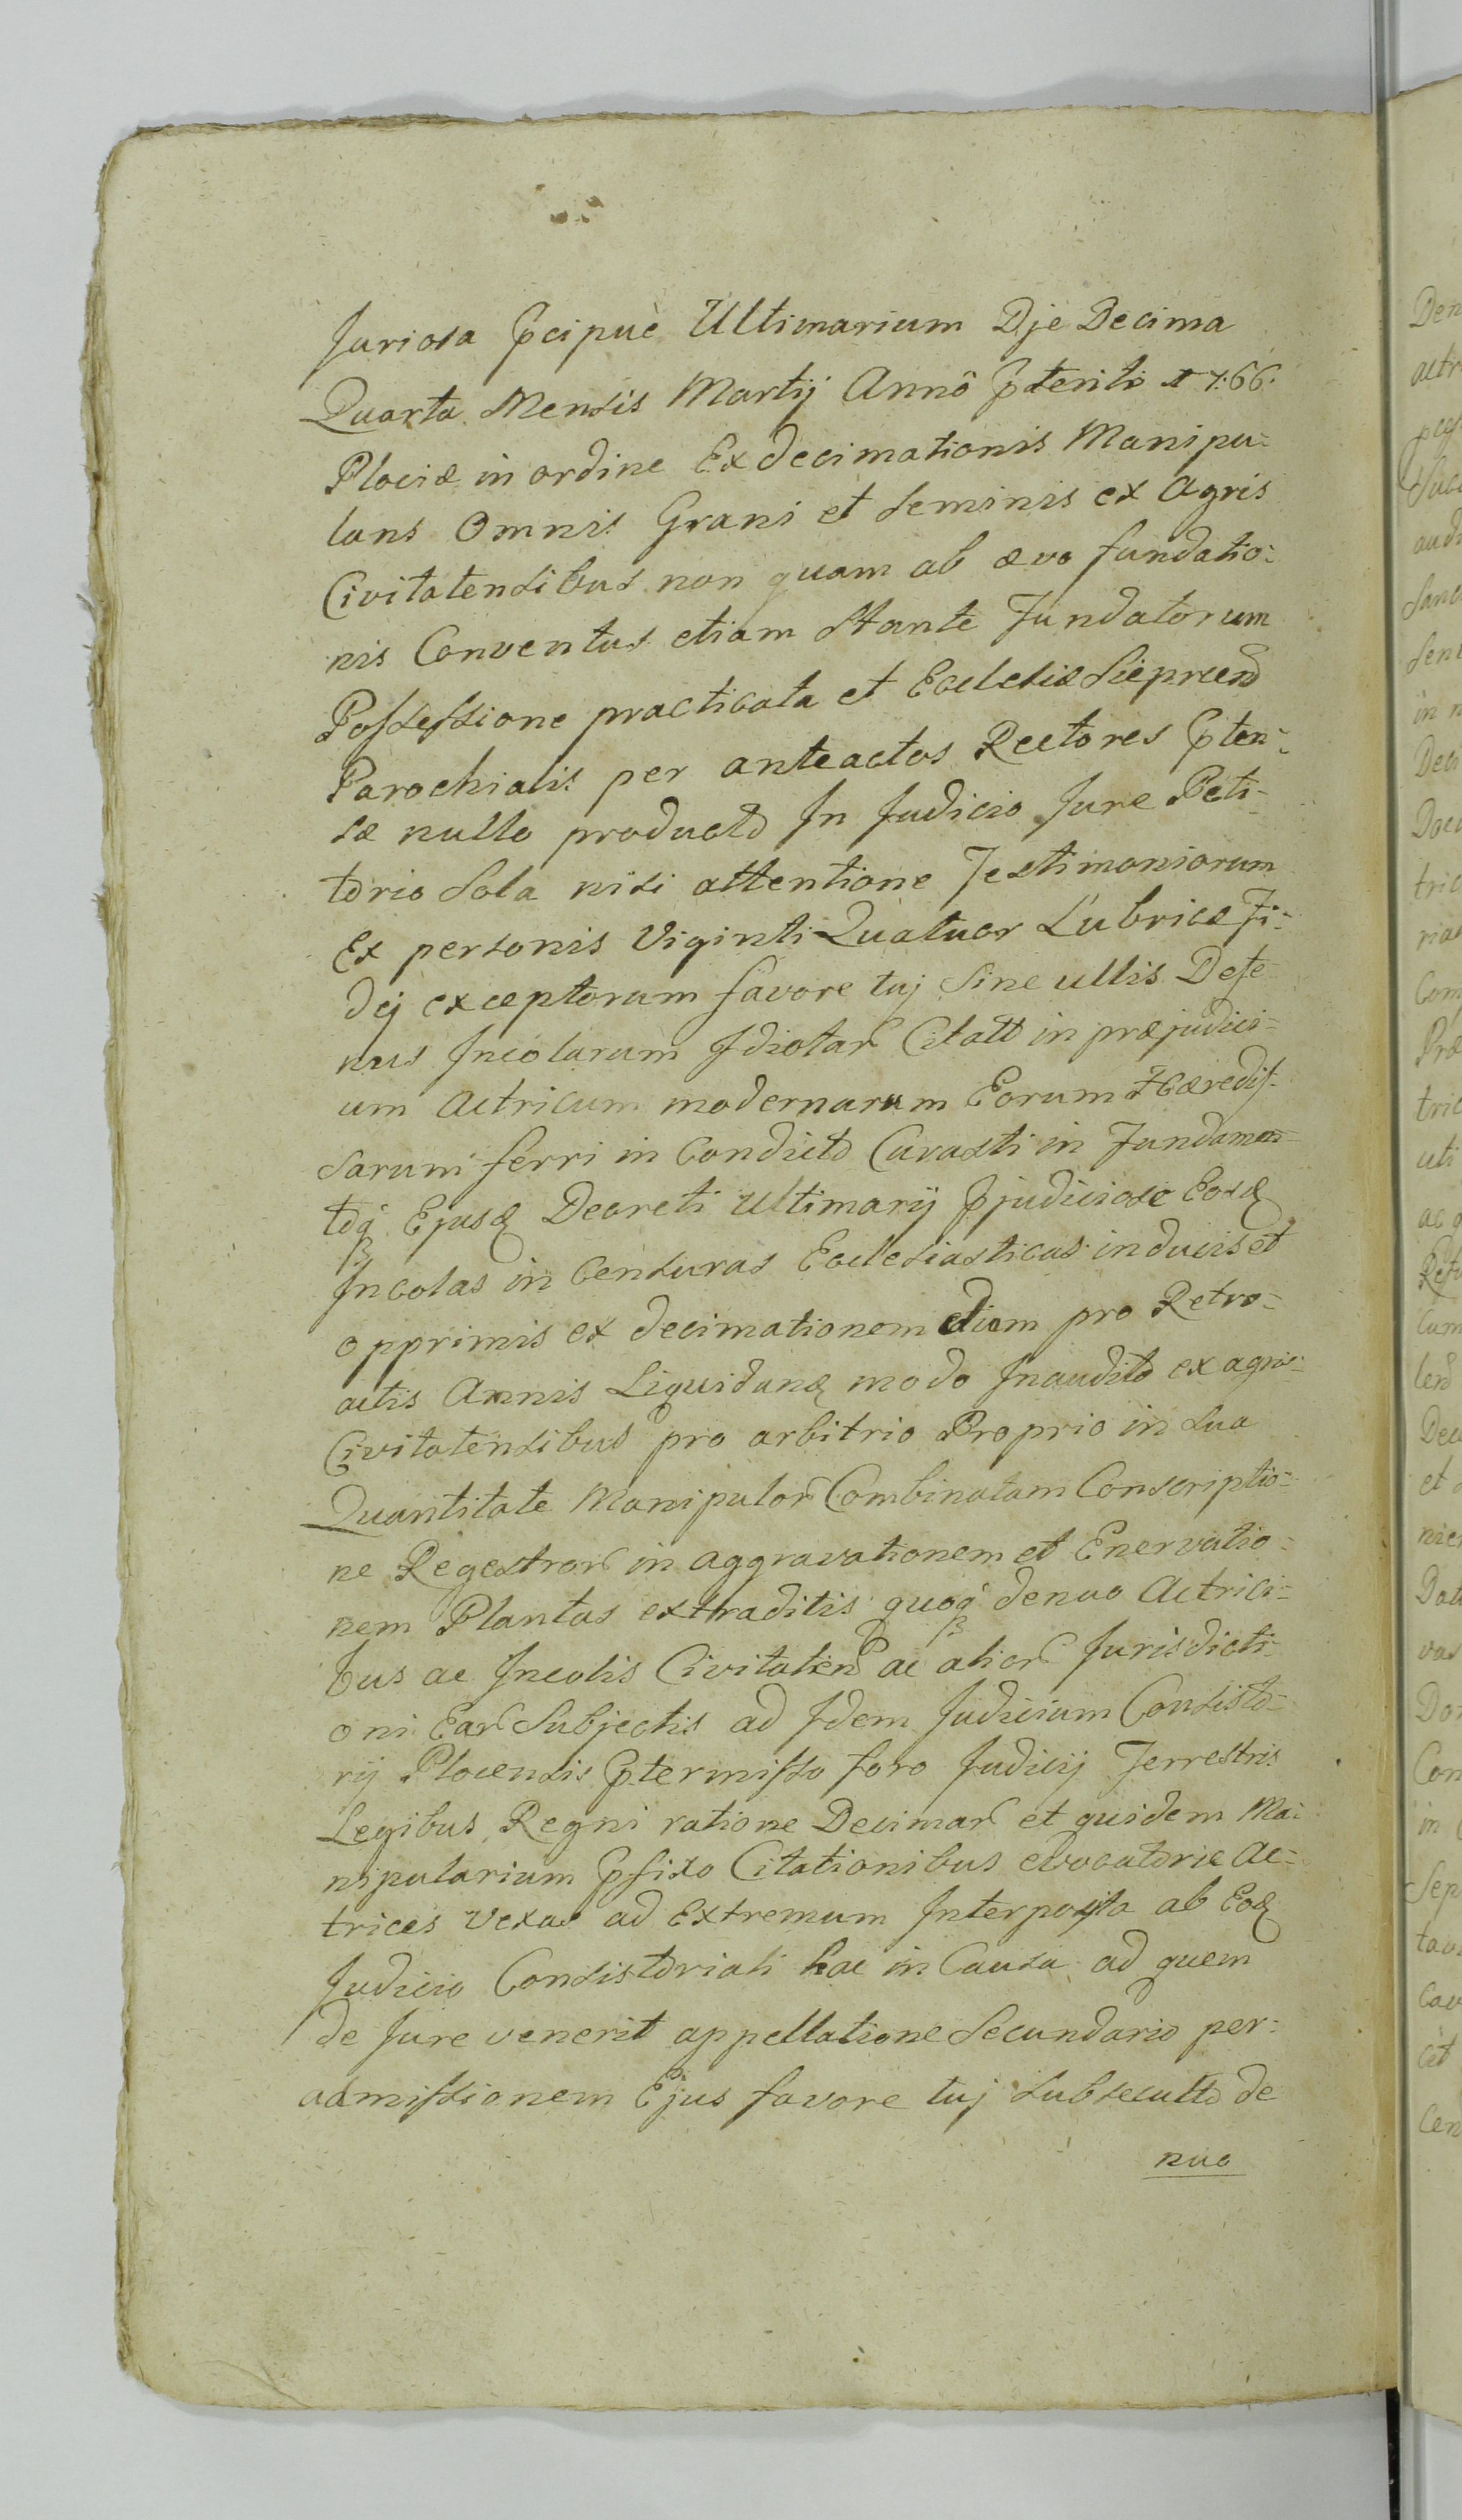 juriosa Pcipuè Ultimarium Dje Decima
Quarta Mensis Martij Annô Pteriti 1766.
Plociæ in ordine Exdecimationis Manipu=
lans Omnis Grani et seminis ex Agris
Civitatensibus non quam ab ævo fundatio=
nis Conventus etiam Stante Fundatorum
Possessione practicata et Ecclesiæ Sieprcen
Parochialis per anteactos Rectores Pten=
sæ nullo producto In Judicio Jure Peti=
torio Sola nisi attentione Testimoniorum
Ex personis Viginti Quatuor Lubricæ Fi=
dej exceptorum favore tuj Sine ullis Defe=
nus Incolarum Idiotar Citatt in præjudici=
um Actricum modernarum Eorum Hæredis=
sarum ferri in Condicto Curasti in Fundamen=
toq Ejusq Decreti Ultimarij Pjudiciose Eosq
Incolas in Censuras Ecclesiasticas inducis et
opprimis exdecimationem etiam pro Retro=
actis Annis Liquidanq modo Inaudito ex agris
Civitatensibus pro arbitrio Proprio in Sua
Quantitate Manipulor Combinatam Conscriptio=
ne Regestror in aggravationem et Enervatio=
nem Plantas extraditis quoq denuo Actrici=
bus ac Incolis Civitaten ac alior Jurisdicti=
oni Ear Subjectis ad Idem Judicium Consisto=
rij Plocensis Ptermisso foro Judicij Terrestris
Legibus Regni ratione Decimar et quidem Ma=
nipularium Pfixo Citationibus evocatoriæ Ac=
trices Vexas ad Extremum Interposita ab Eoq
Judicio Consistoriali hac in Causa ad quem
de Jure venerit appellatione Secundario per=
admissionem Ejus favore tuj subsecutto de
nuo